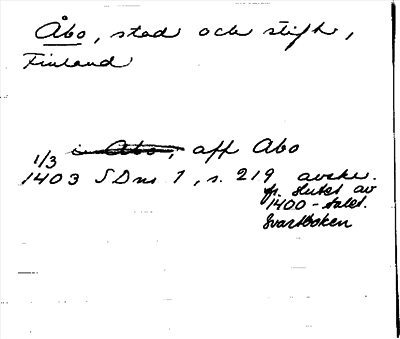 Åbo, stad och stift,
Finland
i Abo, aff Abo
1/3
1403 SDns 1, s. 219 avskr.
fr. slutet av
1400-talet.
Svartboken